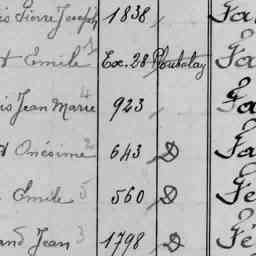 is Pierre Joseph 1838 Fa
t Emile 1 Ex. 28 Fa
is Jean Marie 4 923 Fa
d Onésime 2 643 D Fa
Emile 5 560 D Fé
and Jean 3 1798 D Fé